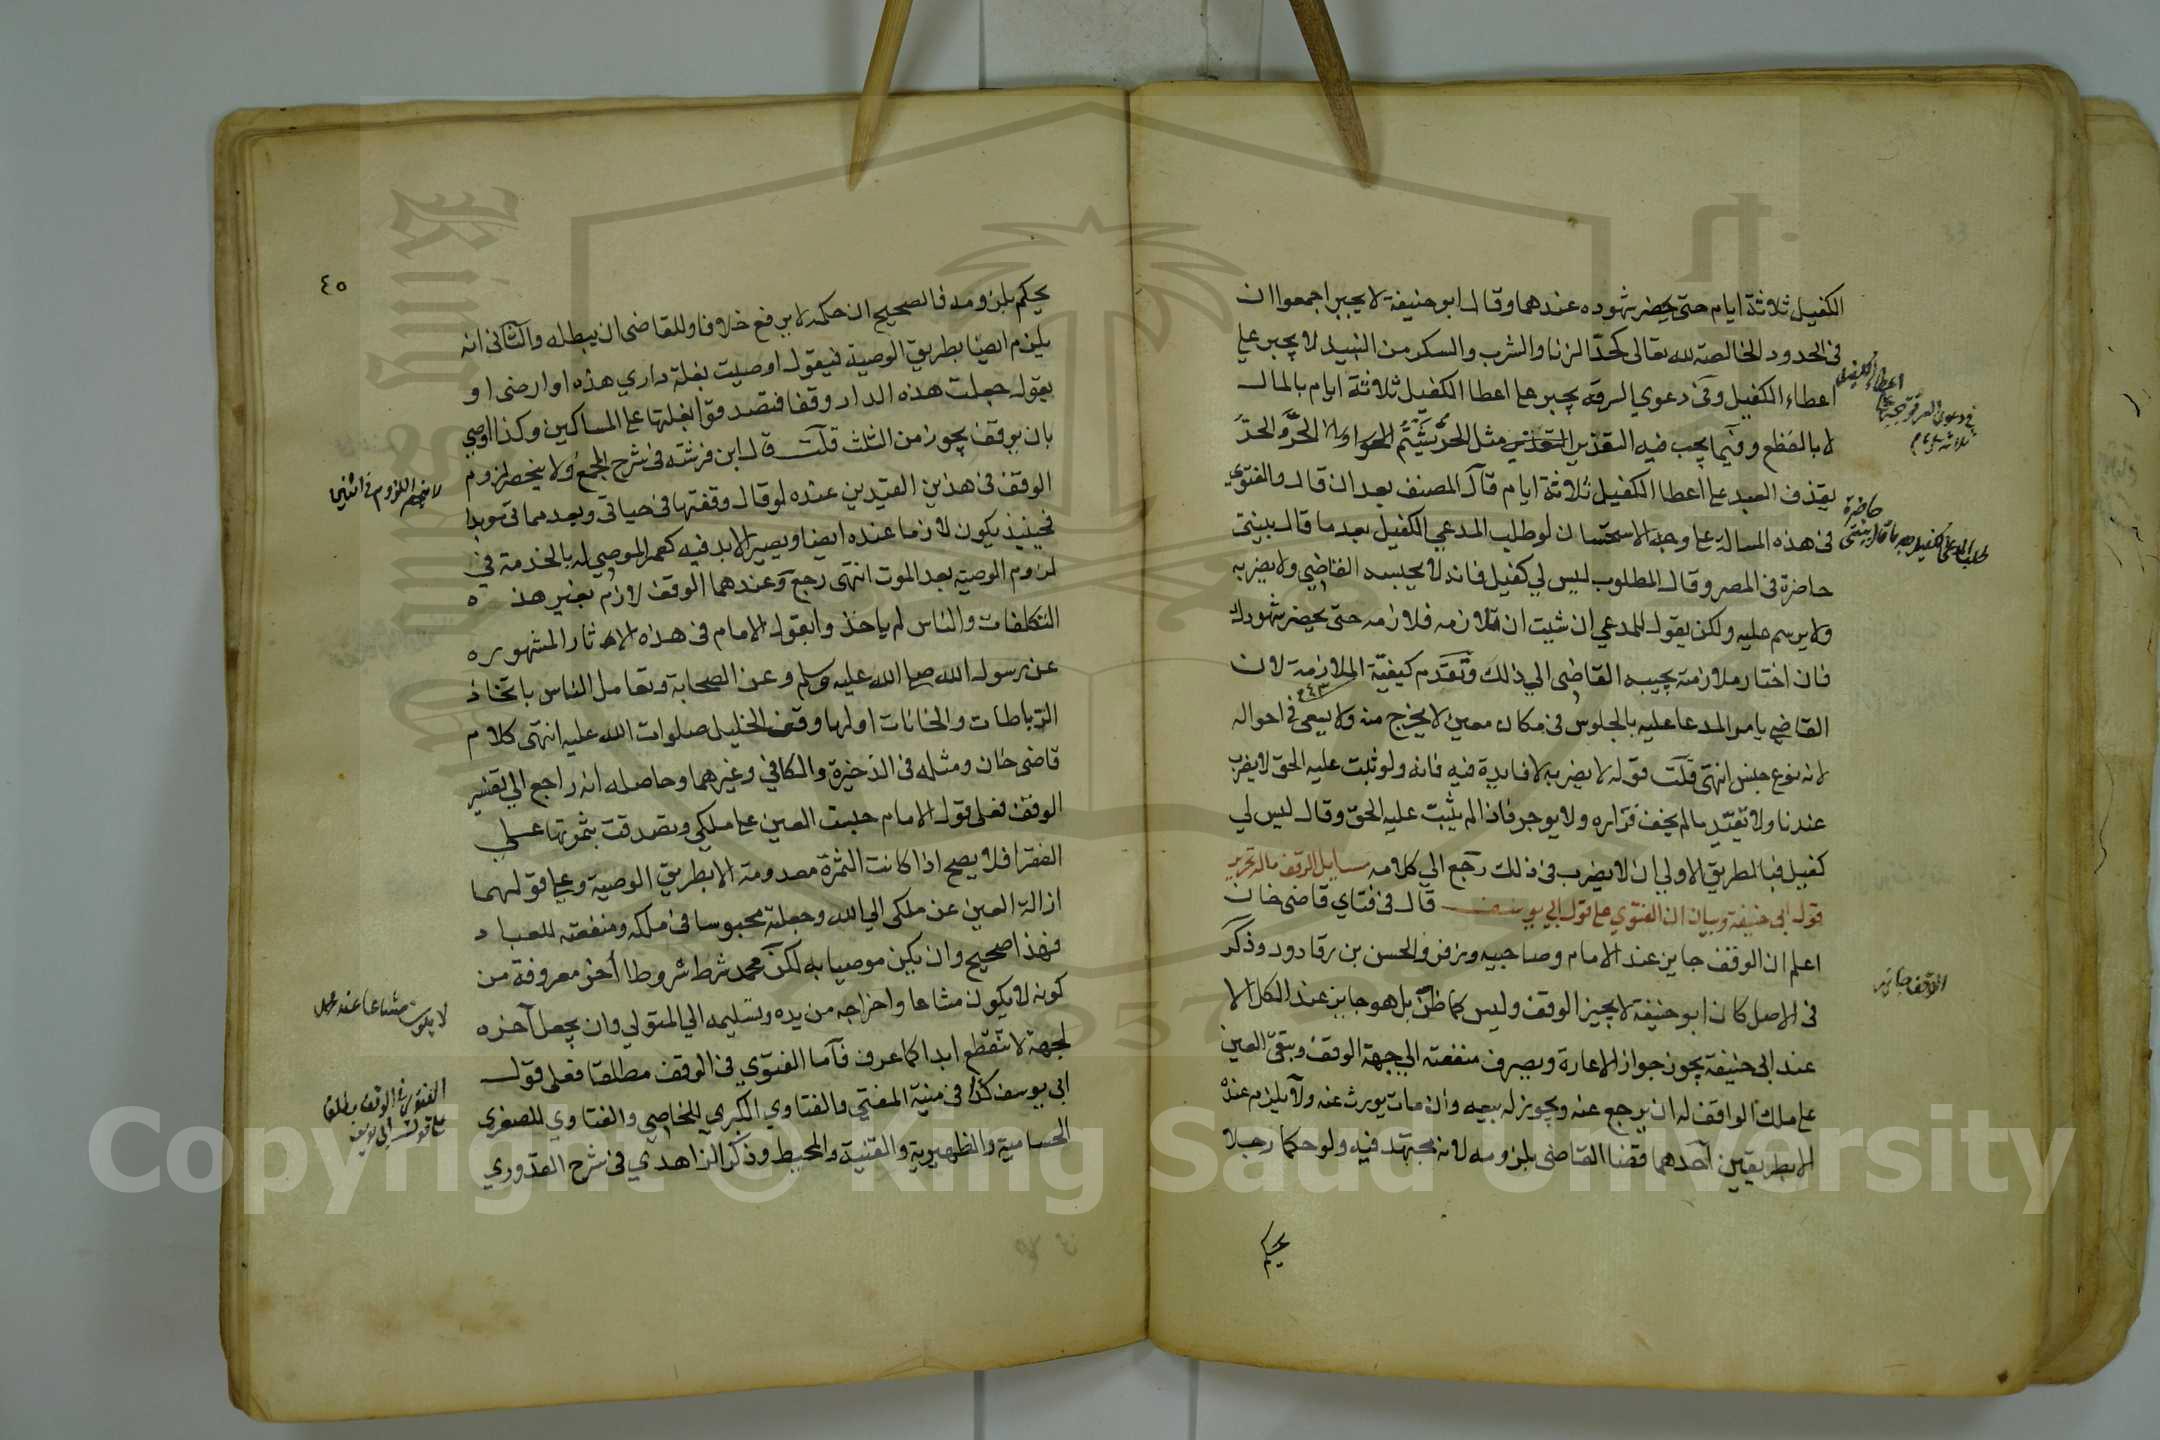 الكفيل ثلاثة ايام حتى يحضر شهوده عندهما وقال ابو حنيفة لا يجبر اجمعوا ان
في الحدود الخالصة لله تعالى كحد الزنا والشرب والسكر من النبيذ لا يجبر علي
اعطاء الكفيل وفي دعوي السرقة يجبر علي اعطا الكفيل ثلاثة ايام بالمال
لا بالقطع وفيما يجب فيه التعذير مثل الحر يشتم الحر اولا الحر الحد
يقذف العبد علي اعطا الكفيل ثلاثة ايام قال المصنف بعد ان قال والفتوي
في هذه المسالة علي وجه الاستحسان لو طلب المدعي الكفيل بعد ما قال بينتي
حاضرة في المصر وقال المطلوب ليس لي كفيل فانه لا يحبسه القاضي ولا يضربه
ولا يرسم عليه ولكن يقول للمدعي ان شيت ان تلازمه فلازمه حتى يحضر شهودك
فان اختار ملازمته يجيبه القاضي الي ذلك وتقدم كيفية الملازمة لان
القاضي يامر المدعا عليه بالجلوس في مكان معين لا يخرج منه ولا يسعى في احواله
لانه نوع حبس انتهى قلت قوله لا يضربه لا فايدة فيه فانه ولو ثبت عليه الحق لا يضرب
عندنا ولا تقيد ما لم يخف فراره ولا يوجر فاذا لم يثبت عليه الحق وقال ليس لي
كفيل فبالطريق الاولي ان لا يضرب في ذلك رجع الي كلامه مسايل الوقف ما له تحرير
قول ابي حنيفة وبيان ان الفتوي علي قول ابي يوسف قال في فتاي قاضي خان
اعلم ان الوقف جايز عند الامام وصاحبيه وزفر والحسن بن زيادود وذكر
في الاصل كان ابو حنيفة لا يجيز الوقف وليس كما ظن بل هو جايز عند الكل الا
عند ابي حنيفة يجوز جواز الاعارة ويصرف منفعته الي جهة الوقف ويبقي العين
علي ملك الواقف له ان يرجع عنه ويجوز له بيعه وان مات يورث عنه ولا يلزم عنده
الا بطريقين احدهما قضا القاضي بلزومه لانه مجتهد فيه ولو حكما رجلا
يحكم
اعطاء الكفيل
في دعوي السرقة يجبر علي
ثلاثة ايام
حاضرة
طلب المدعي الكفيل بعد ما قال بينتي
الوقف جايز
٤٥
يحكم بلزومه فالصحيح ان حكمه لا يرفع خلافا وللقاضي ان يبطله والثاني انه
يلزم ايضا بطريق الوصية فيقول اوصيت بغلة داري هذه او ارضي او
يقول جعلت هذه الدار وقفا فتصدقوا بغلتها علي المساكين وكذا اوصي
بان يوقف يجوز من الثلث قلت قال ابن فرشته في شرح المجمع ولا ينحصر لزوم
الوقف في هذين القيدين عنده لو قال وقفتها في حياتي وبعد مماتي موبدا
فحينيذ يكون لازما عنده ايضا ويصير الابد فيه كعمر الموصي له بالخدمة في
لزوم الوصية بعد الموت انتهى رجع وعندهما الوقف لازم بغير هذه
التكلفات والناس لم ياخذوا بقول الامام في هذه الاثار المشهوره
عن رسول الله صلي الله عليه وسلم وعن الصحابة وتعامل الناس باتخاذ
الرباطات والخانات اولها وقف الخليل صلوات الله عليه انتهى كلام
قاضي خان ومثله في الذخيرة والكافي وغيرهما وحاصله انه راجع الي تفسير
الوقف فعلي قول الامام حبست العين علي ملكي وتصدقت بثمرتها علي
الفقرا فلا يصح اذا كانت الثمرة معدومة الا بطريق الوصية وعلي قولهما
ازالة العين عن ملكي الي الله وجعلته محبوسا في ملكه ومنفعته للعباد
فهذا صحيح وان يكن موصيا به لكن محمد شرط شروطا اخر معروفة من
كونه لا يكون مشاعا واخراجه من يده وتسليمه الي المتولي وان يجعل آخره
لجهة لا تنقطع ابدا كما عرف فاما الفتوي في الوقف مطلقا فعلى قول
ابي يوسف كذا في منية المفتي والفتاوي الكبري للخاصي والفتاوي للصغري
الحسامية والظهيرية والقنية والمحيط وذكر الزاهدي في شرح القدوري
لا ينحصر اللزوم في اثنين
لا يكون مشاعا عند محمد
الفتوي في الوقف مطلقا
علي قول ابي يوسف
Copyright © King Saud University